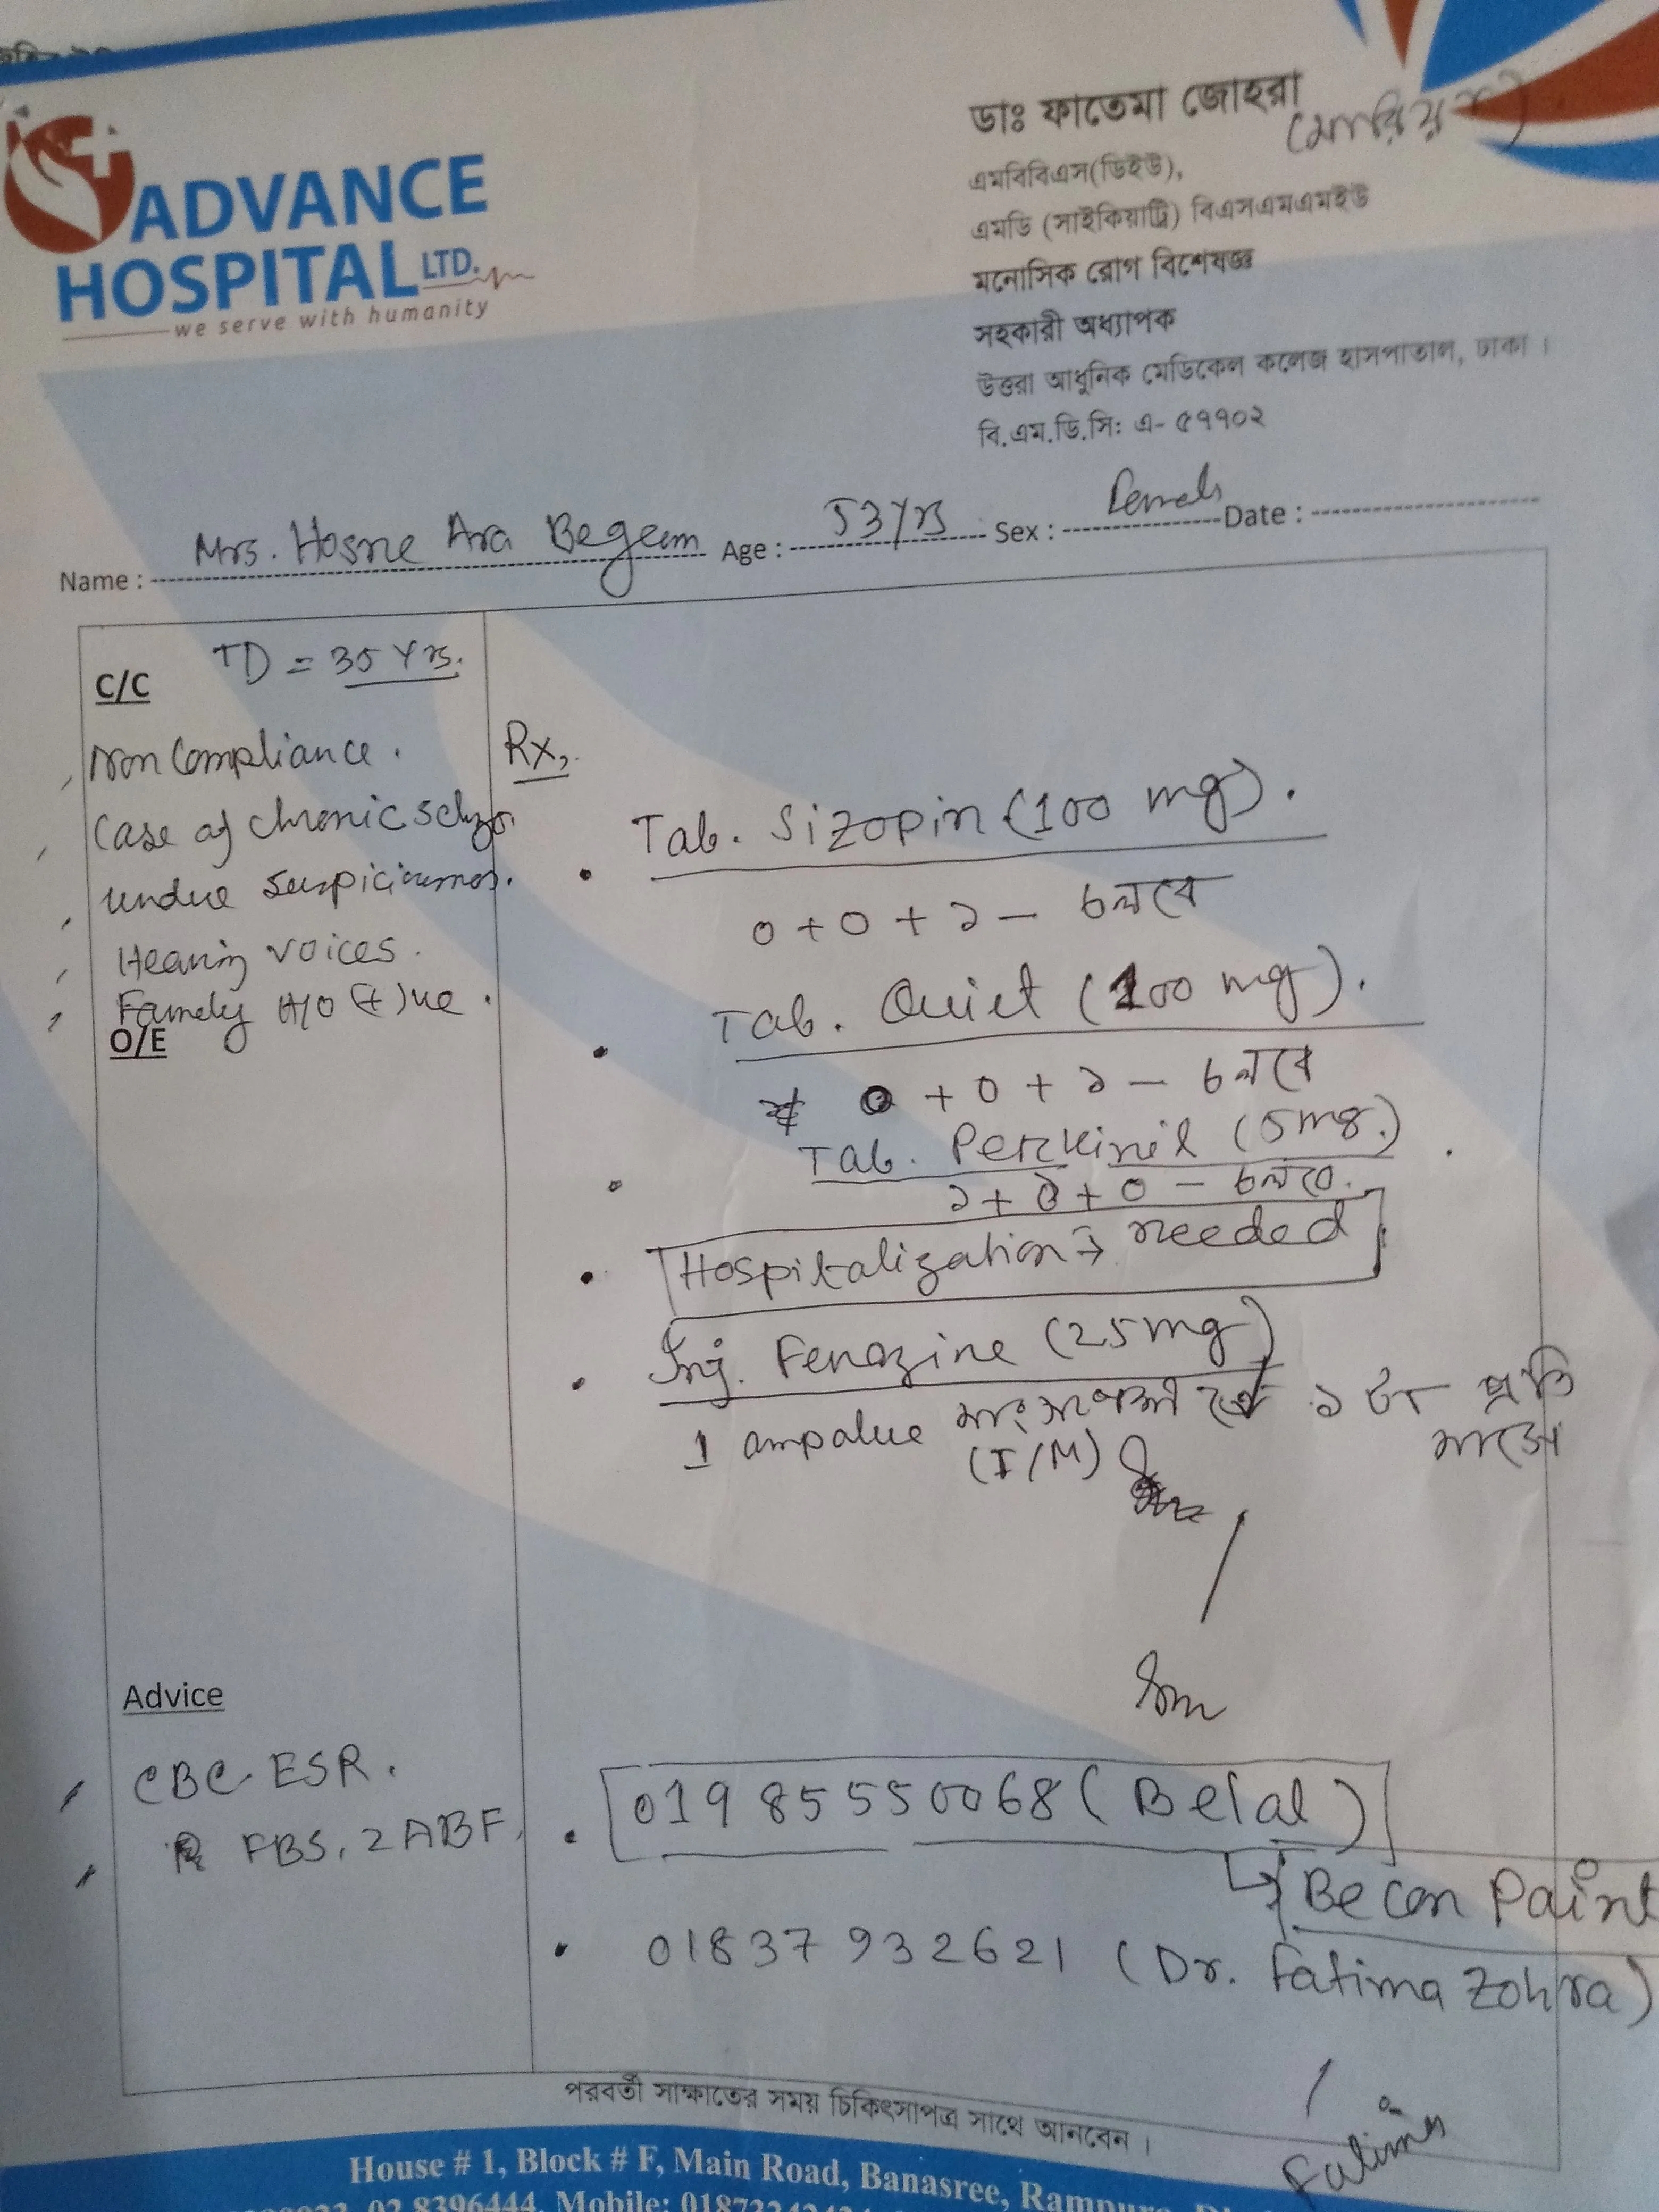 ADVANCE
HOSPITAL LTD.
we serve with humanity
ডাঃ ফাতেমা জোহরা
এমবিবিএস(ডিইউ),
এমডি (সাইকিয়াট্রি) বিএসএমএমইউ
মনোসিক রোগ বিশেষজ্ঞ
সহকারী অধ্যাপক
উত্তরা আধুনিক মেডিকেল কলেজ হাসপাতাল, ঢাকা ।
বি.এম.ডি.সি: এ- ৫৭৭০২
Name : Mrs. Hosne Ara Begum Age : 53 Yrs Sex : Female Date :
C/C TD = 35 Yrs.
Non Compliance.
Case of chronic schizo.
undue suspiciousness.
Hearing voices.
Family H/O (+)ve.
O/E
Rx,
Tab. Sizopin (100 mg).
০ + ০ + ১ — চলবে
Tab. Quiet (100 mg).
০ + ০ + ১ — চলবে
Tab. Perkinil (5mg.)
১ + ১ + ০ — চলবে.
Hospitalization → needed
Inj. Fenazine (25mg)
1 ampolue মাংসপেশী তে ১ টা প্রতি
মাসে
(I/M)
Advice
CBC ESR.
FBS, 2ABF,
01985550068 (Belal)
Becon Paint
01837932621 (Dr. Fatima Zohra)
Fatima
পরবর্তী সাক্ষাতের সময় চিকিৎসাপত্র সাথে আনবেন ।
House # 1, Block # F, Main Road, Banasree,
02 8396444, Mobile: